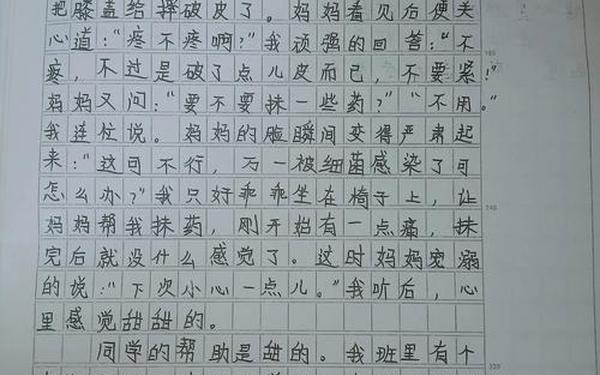 把膝盖给摔破皮了。妈妈看见后便关
心道："疼不疼啊？"我顽强的回答："不
疼，不过是破了点儿皮而已，不要紧！"
妈妈又问："要不要抹一些药？""不用。"
我连忙说。妈妈的脸瞬间变得严肃起
来："这可不行，万一被细菌感染了可
怎么办？"我只好乖乖坐在椅子上，让
妈妈帮我抹药，刚开始有一点痛，抹
完后就没什么感觉了。这时妈妈宠溺
的说："下次小心一点儿。"我听后，心
里感觉甜甜的。
同学的帮助是甜的。我班里有个